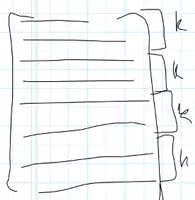 k
k
k
k